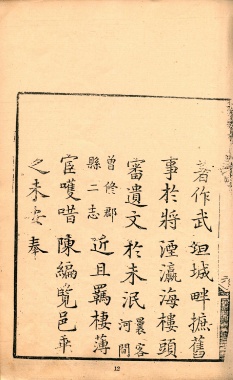 著作武垣城畔摭舊
事於將湮瀛海樓頭
審遺文於未泯曩客河間
曾修郡縣二志近且羈棲薄
宦嚄唶陳編覽邑乘
之未安奉
12